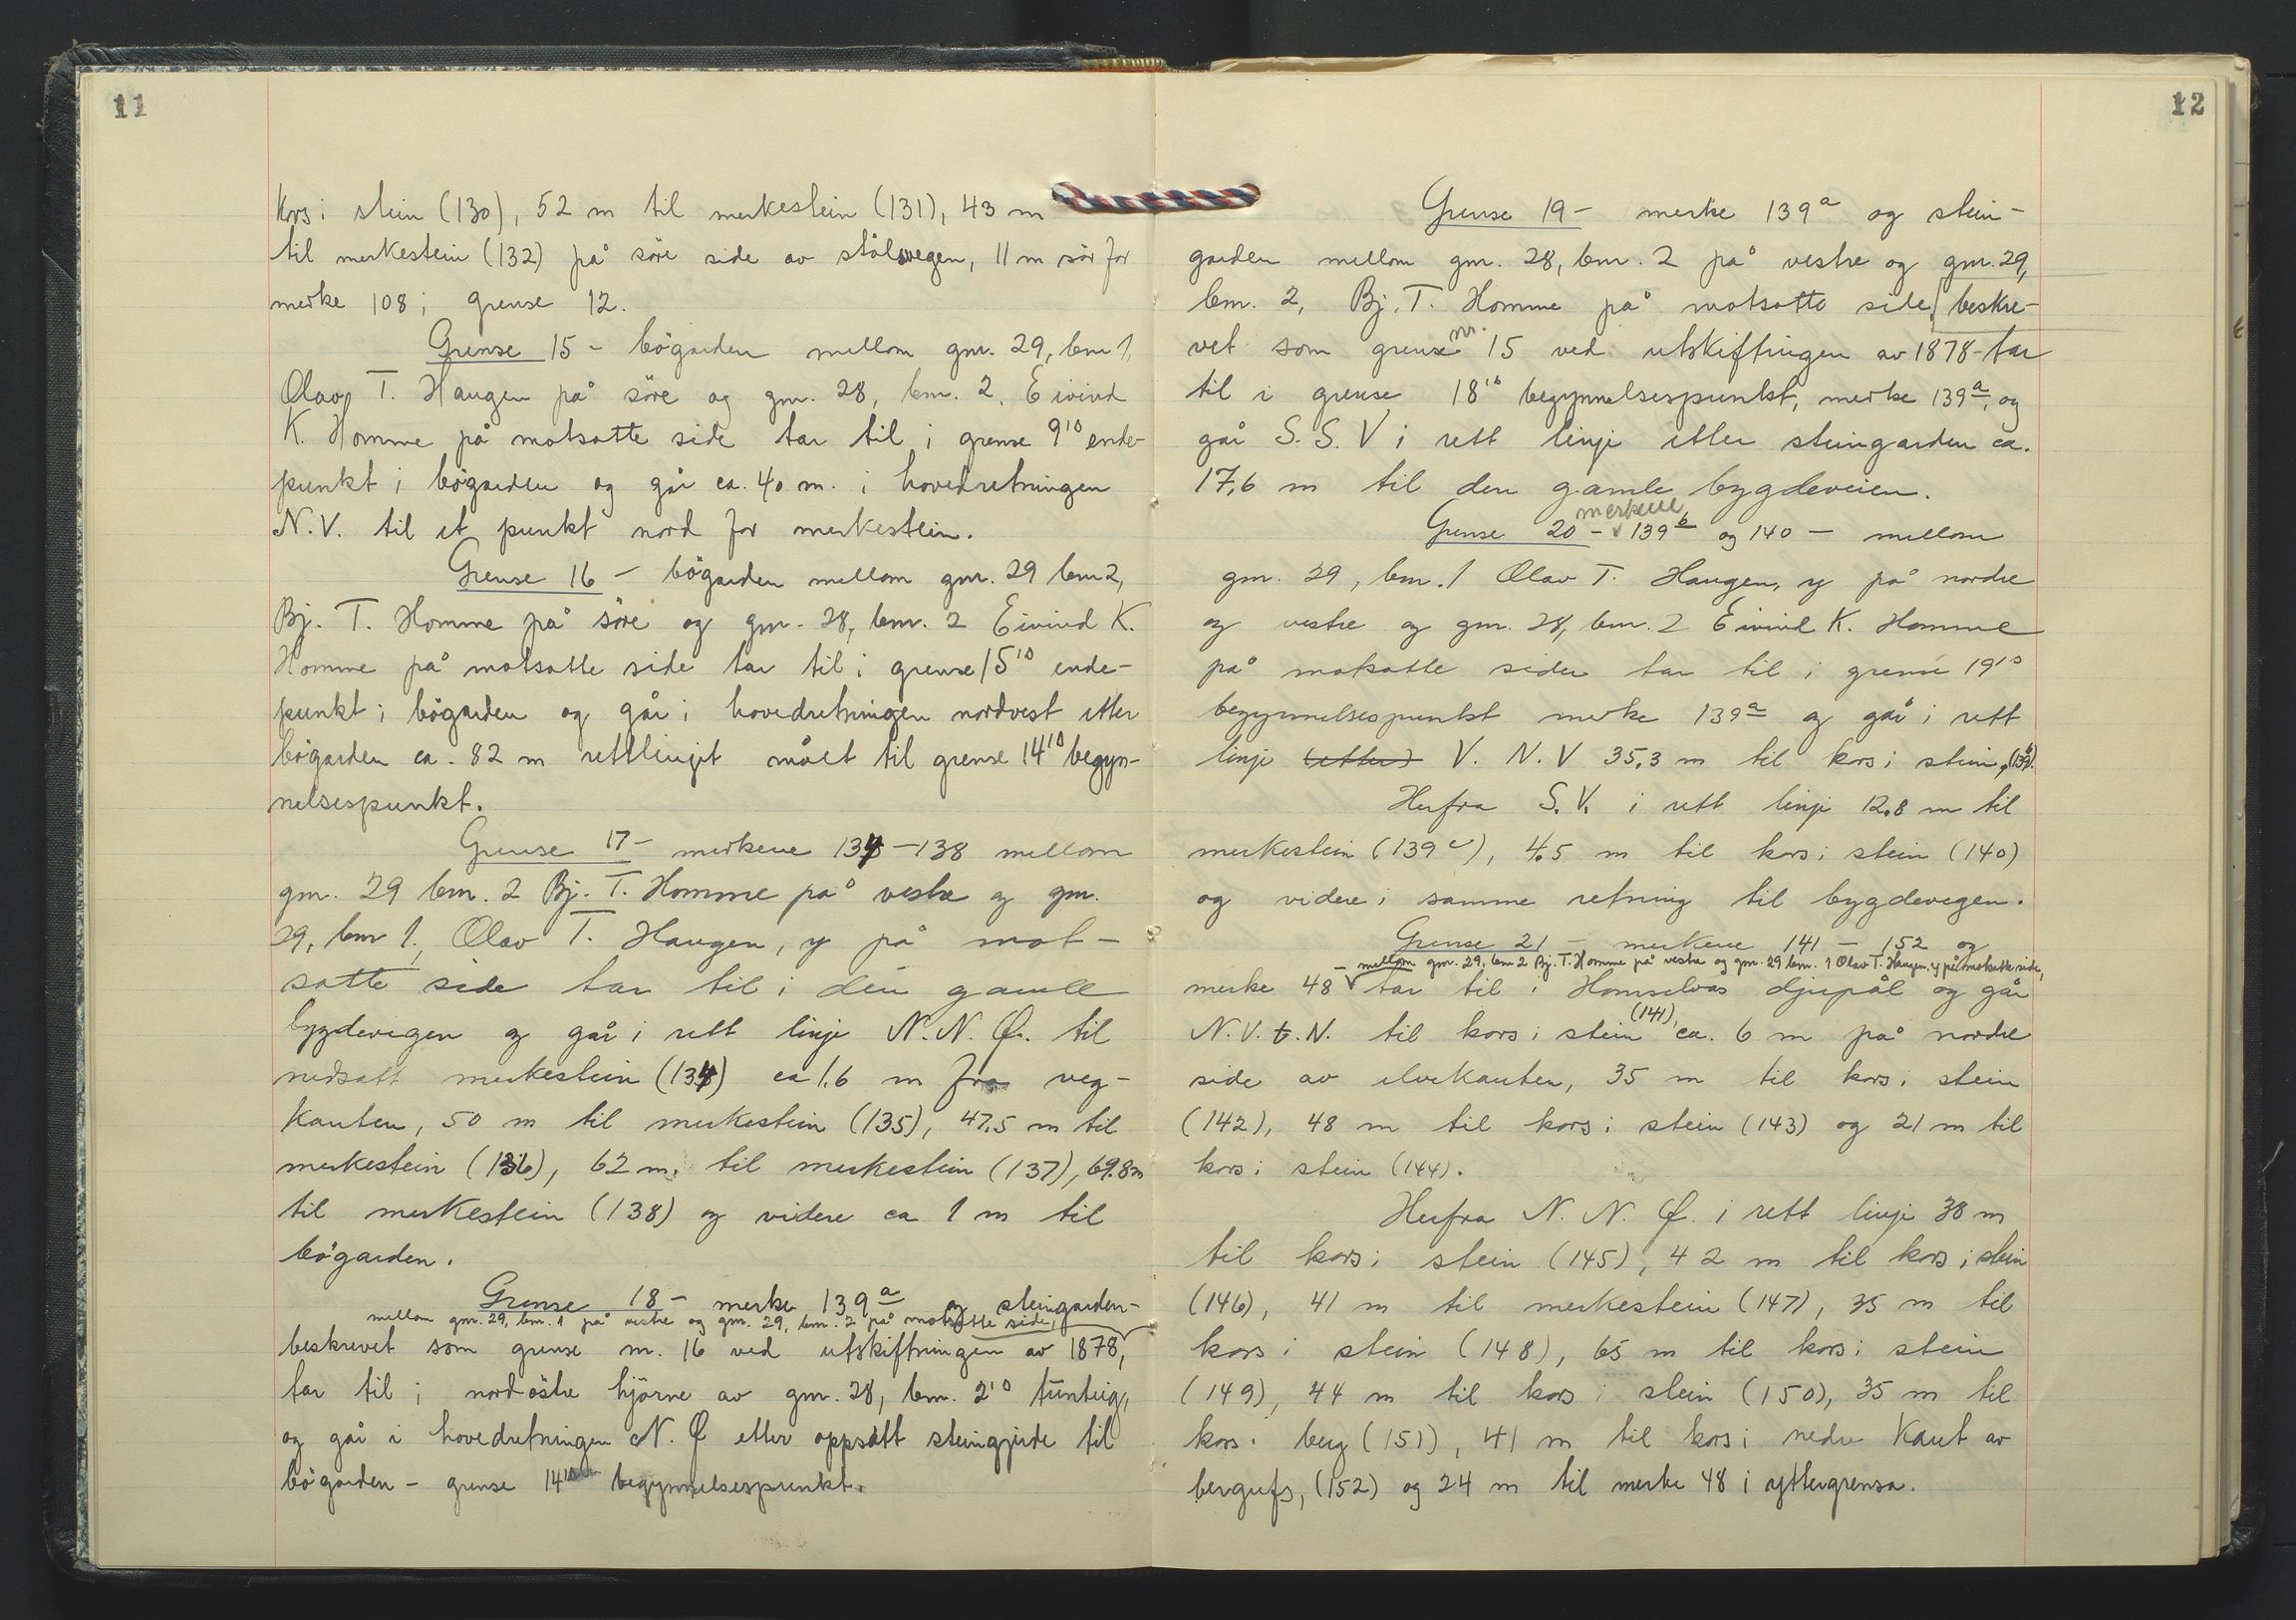 11
kors i stein (130), 52 m til merkestein (131), 43 m
til merkestein (132) på söre side av stölsvegen, 11 m sör for
merke 108 i grense 12.
Grense 15 - bögarden mellom gnr. 29, bnr 1,
Olav T. Haugen på söre og gnr. 28, bnr. 2, Eivind
K. Homme på motsatte side tar til i grense 9's ende-
punkt i bögarden og går ca. 40 m. i hovedretningen
N.V. til et punkt nord for merkestein.
Grense 16 - bögarden mellom gnr. 29 bnr 2,
Bj. T. Homme på söre og gnr. 28, bnr. 2 Eivind K.
Homme på motsatte side tar til i grense 15's ende-
punkt i bögarden og går i hovedretningen nordvest etter
bögarden ca. 82 m rettlinjet målt til grense 14's begyn-
nelsespunkt.
Grense 17 - merkene 134 - 138 mellom
gnr. 29 bnr. 2 Bj. T. Homme på vestre og gnr.
29, bnr 1, Olav T. Haugen, y på mot-
satte side tar til i den gamle
bygdevegen og går i rett linje N.N.Ø. til
nedsatt merkestein (134) ca 1,6 m fra veg-
kanten, 50 m til merkestein (135), 47,5 m til
merkestein (136), 62 m. til merkestein (137), 69.8 m
til merkestein (138) og videre ca 1 m til
bögarden.
Grense 18 - merke 139a og steingarden -
mellom gnr. 29, bnr. 1 på vestre og gnr. 29, bnr. 2 på motsatte side,
beskrevet som grense nr. 16 ved utskiftningen av 1878,
tar til i nordöstre hjörne av gnr. 28, bnr. 2's tunteig,
og går i hovedretningen N.Ø etter oppsatt steingjerde til
bögarden - grense 14's begynnelsespunkt.
12
Grense 19 - merke 139a og stein-
garden mellom gnr. 28, bnr. 2 på vestre og gnr. 29,
bnr. 2, Bj. T. Homme på motsatte side, beskre-
vet som grense nr. 15 ved utskiftningen av 1878 - tar
til i grense 18's begynnelsespunkt, merke 139a, og
går S.S.V i rett linje etter steingarden ca.
17,6 m til den gamle bygdeveien.
merkene
Grense 20 - 139b og 140 - mellom
gnr. 29, bnr. 1 Olav T. Haugen, y på nordre
og vestre og gnr. 28, bnr. 2 Eivind K. Homme
på motsatte sider tar til i grense 19's
begynnelsespunkt merke 139a og går i rett
linje (etter) V.N.V 35,3 m til kors i stein, (139b).
Herfra S.V. i rett linje 12,8 m til
merkestein (139c), 4,5 m til kors i stein (140)
og videre i samme retning til bygdevegen.
Grense 21 - merkene 141 - 152 og
mellom gnr. 29, bnr 2 Bj. T. Homme på vestre og gnr. 29 bnr. 1 Olav T. Haugen, y på motsatte side,
merke 48 - tar til i Homselvas djupål og går
N.V.t.N. til kors i stein (141), ca. 6 m på nordre
side av elvekanten, 35 m til kors i stein
(142), 48 m til kors i stein (143) og 21 m til
kors i stein (144).
Herfra N.N.Ø. i rett linje 38 m
til kors i stein (145), 42 m til kors i stein
(146), 41 m til merkestein (147), 35 m til
kors i stein (148), 65 m til kors i stein
(149), 44 m til kors i stein (150), 35 m til
kors i berg (151), 41 m til kors i nedre kant av
bergufs, (152) og 24 m til merke 48 i yttergrensa.